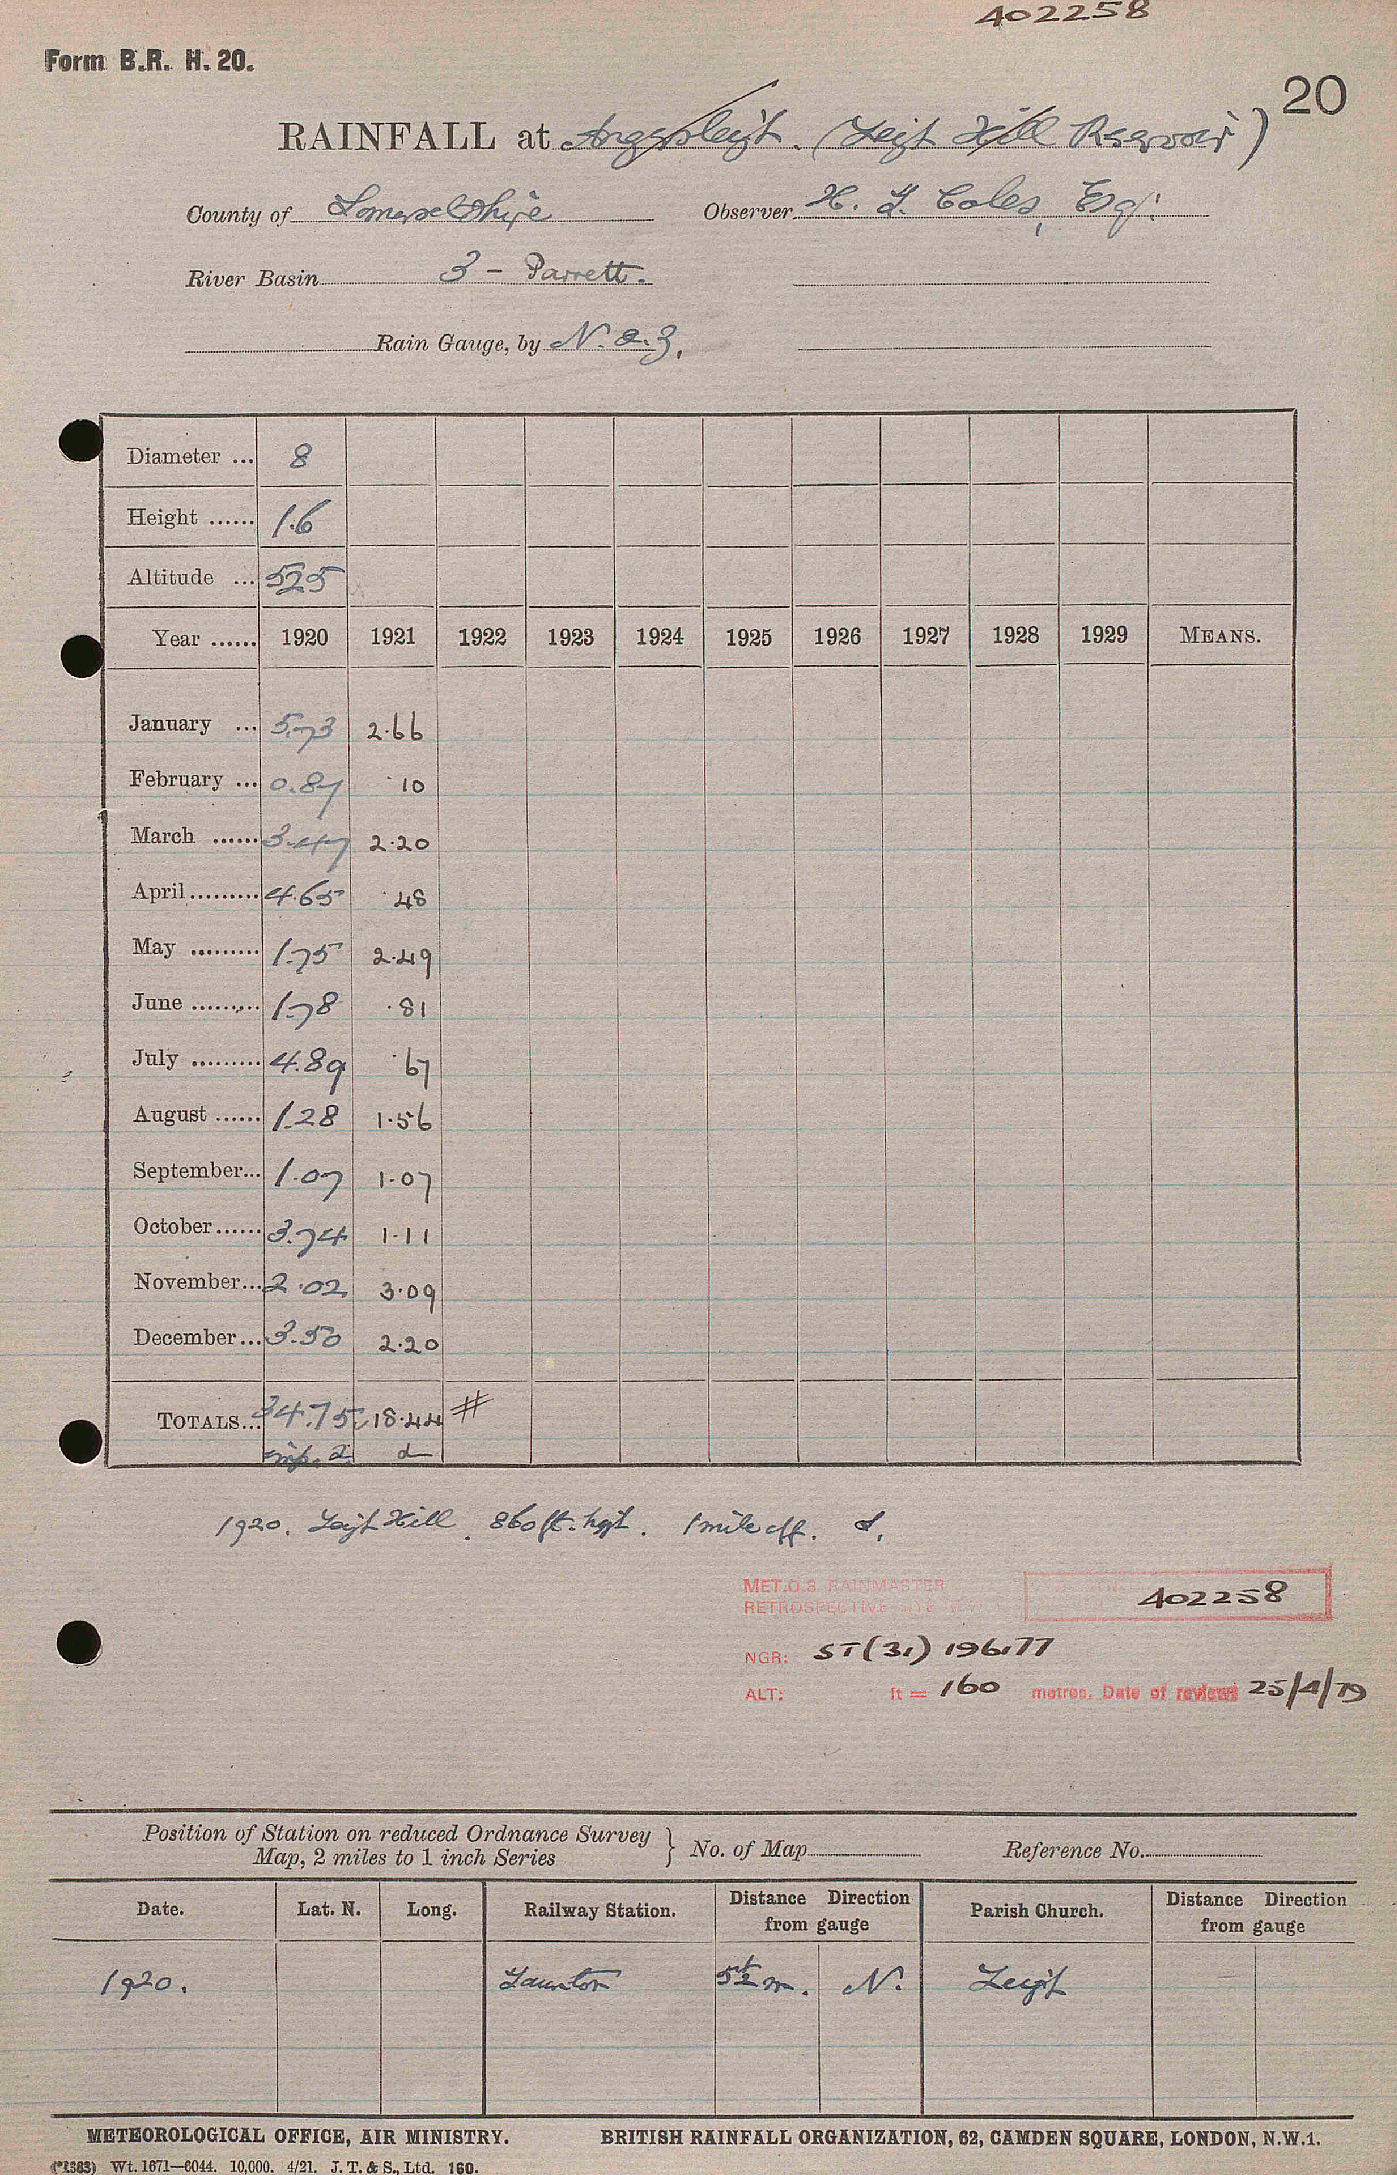 402258
Form B.R. H. 20.
20
RAINFALL at Angersleigh. (Leigh Hill Reservoir)
County of Somersetshire Observer H. L. Coles, Esq:
River Basin 3 - Parrett.
Rain Gauge, by N. & Z.
Diameter ... 8
Height ...... 1.6
Altitude ... 525
Year ...... 1920 1921 1922 1923 1924 1925 1926 1927 1928 1929 MEANS.
January ... 5.73 2.66
February ... 0.87 .10
March ...... 3.47 2.20
April ......... 4.65 .48
May ......... 1.75 2.49
June ......... 1.78 .81
July ......... 4.89 .67
August ...... 1.28 1.56
September... 1.07 1.07
October...... 3.74 1.11
November... 2.02 3.09
December... 3.50 2.20
TOTALS... 34.75 18.44 #
imp. d d
1920. Leigh Hill. 860 ft. hght. 1 mile off. S.
MET.O.8 RAINMASTER
RETROSPECTIVE
402258
NGR: ST(31) 196177
ALT: ft = 160 metres. Date of review 25/4/79
Position of Station on reduced Ordnance Survey
Map, 2 miles to 1 inch Series } No. of Map Reference No.
Date. Lat. N. Long. Railway Station. Distance Direction from gauge Parish Church. Distance Direction from gauge
1920. Taunton 5½ m. N. Leigh
METEOROLOGICAL OFFICE, AIR MINISTRY. BRITISH RAINFALL ORGANIZATION, 62, CAMDEN SQUARE, LONDON, N.W.1.
(*1383) Wt. 1671—6044. 10,000. 4/21. J. T. & S., Ltd. 160.